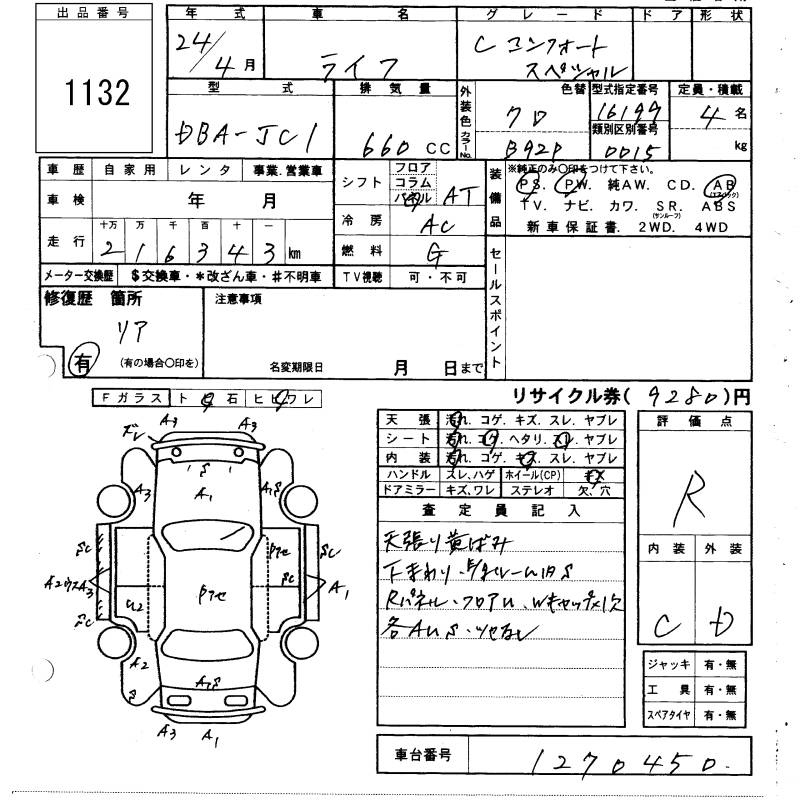 出品番号
1132
年式 車名 グレード ドア 形状
24/4月 ライフ C コンフォート
スペシャル
型式 排気量 外装色 カラーNo. 色替 型式指定番号 定員・積載
DBA-JC1 660CC クロ 16199 4名
類別区別番号
B92P 0015 kg
車歴 自家用 レンタ 事業.営業車
車検 年 月
走行 十万 万 千 百 十 一
216343km
メーター交換歴 $交換車・*改ざん車・#不明車
シフト フロア コラム パネル AT
冷房 AC
燃料 G
TV視聴 可・不可
装備品 ※純正のみ○印をつけて下さい。
PS. PW. 純AW. CD. AB(エアバック)
TV. ナビ. カワ. SR.(サンルーフ) ABS
新車保証書. 2WD. 4WD
セールスポイント
修復歴 箇所 注意事項
リア
有 (有の場合○印を) 名変期限日 月 日まで
リサイクル券(9280)円
Fガラス ト 石 ヒビワレ
A3 A3
ズレ
S
A3 A1 A1S
SC Pアセ SC
A2 A3 Pアセ SC A1
U2
SC
A2
S A1S S
A3 A1
天張 汚れ. コゲ. キズ. スレ. ヤブレ
シート 汚れ. コゲ. ヘタリ. スレ. ヤブレ
内装 汚れ. コゲ. キズ. スレ. ヤブレ
ハンドル スレ、ハゲ ホイール(CP) キズ
ドアミラー キズ、ワレ ステレオ 欠、穴
査定員記入
天張り黄ばみ
下まわり・
Rパネル・フロアU. Wキャップ×1欠
各AUS・ツヤなし
評価点
R
内装 外装
C D
ジャッキ 有・無
工具 有・無
スペアタイヤ 有・無
車台番号 1270450